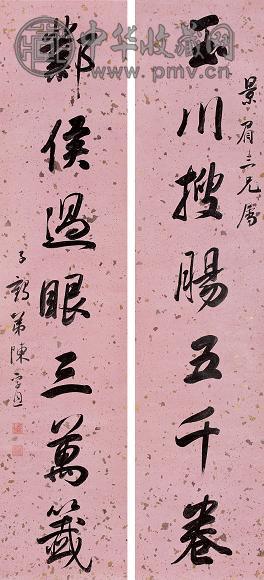 中华收藏网
www.pmv.cn
景眉三兄属
玉川搜腸五千卷
鄴侯過眼三萬籤
子韵弟陳